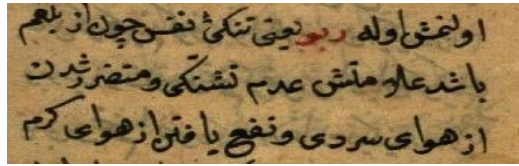 اولنمش اوله ربو یعنی تنکئ نفس چون از بلغم
باشد علامتش عدم تشنکی و متضرر شدن
از هوای سردی و نفع یافتن از هوای کرم